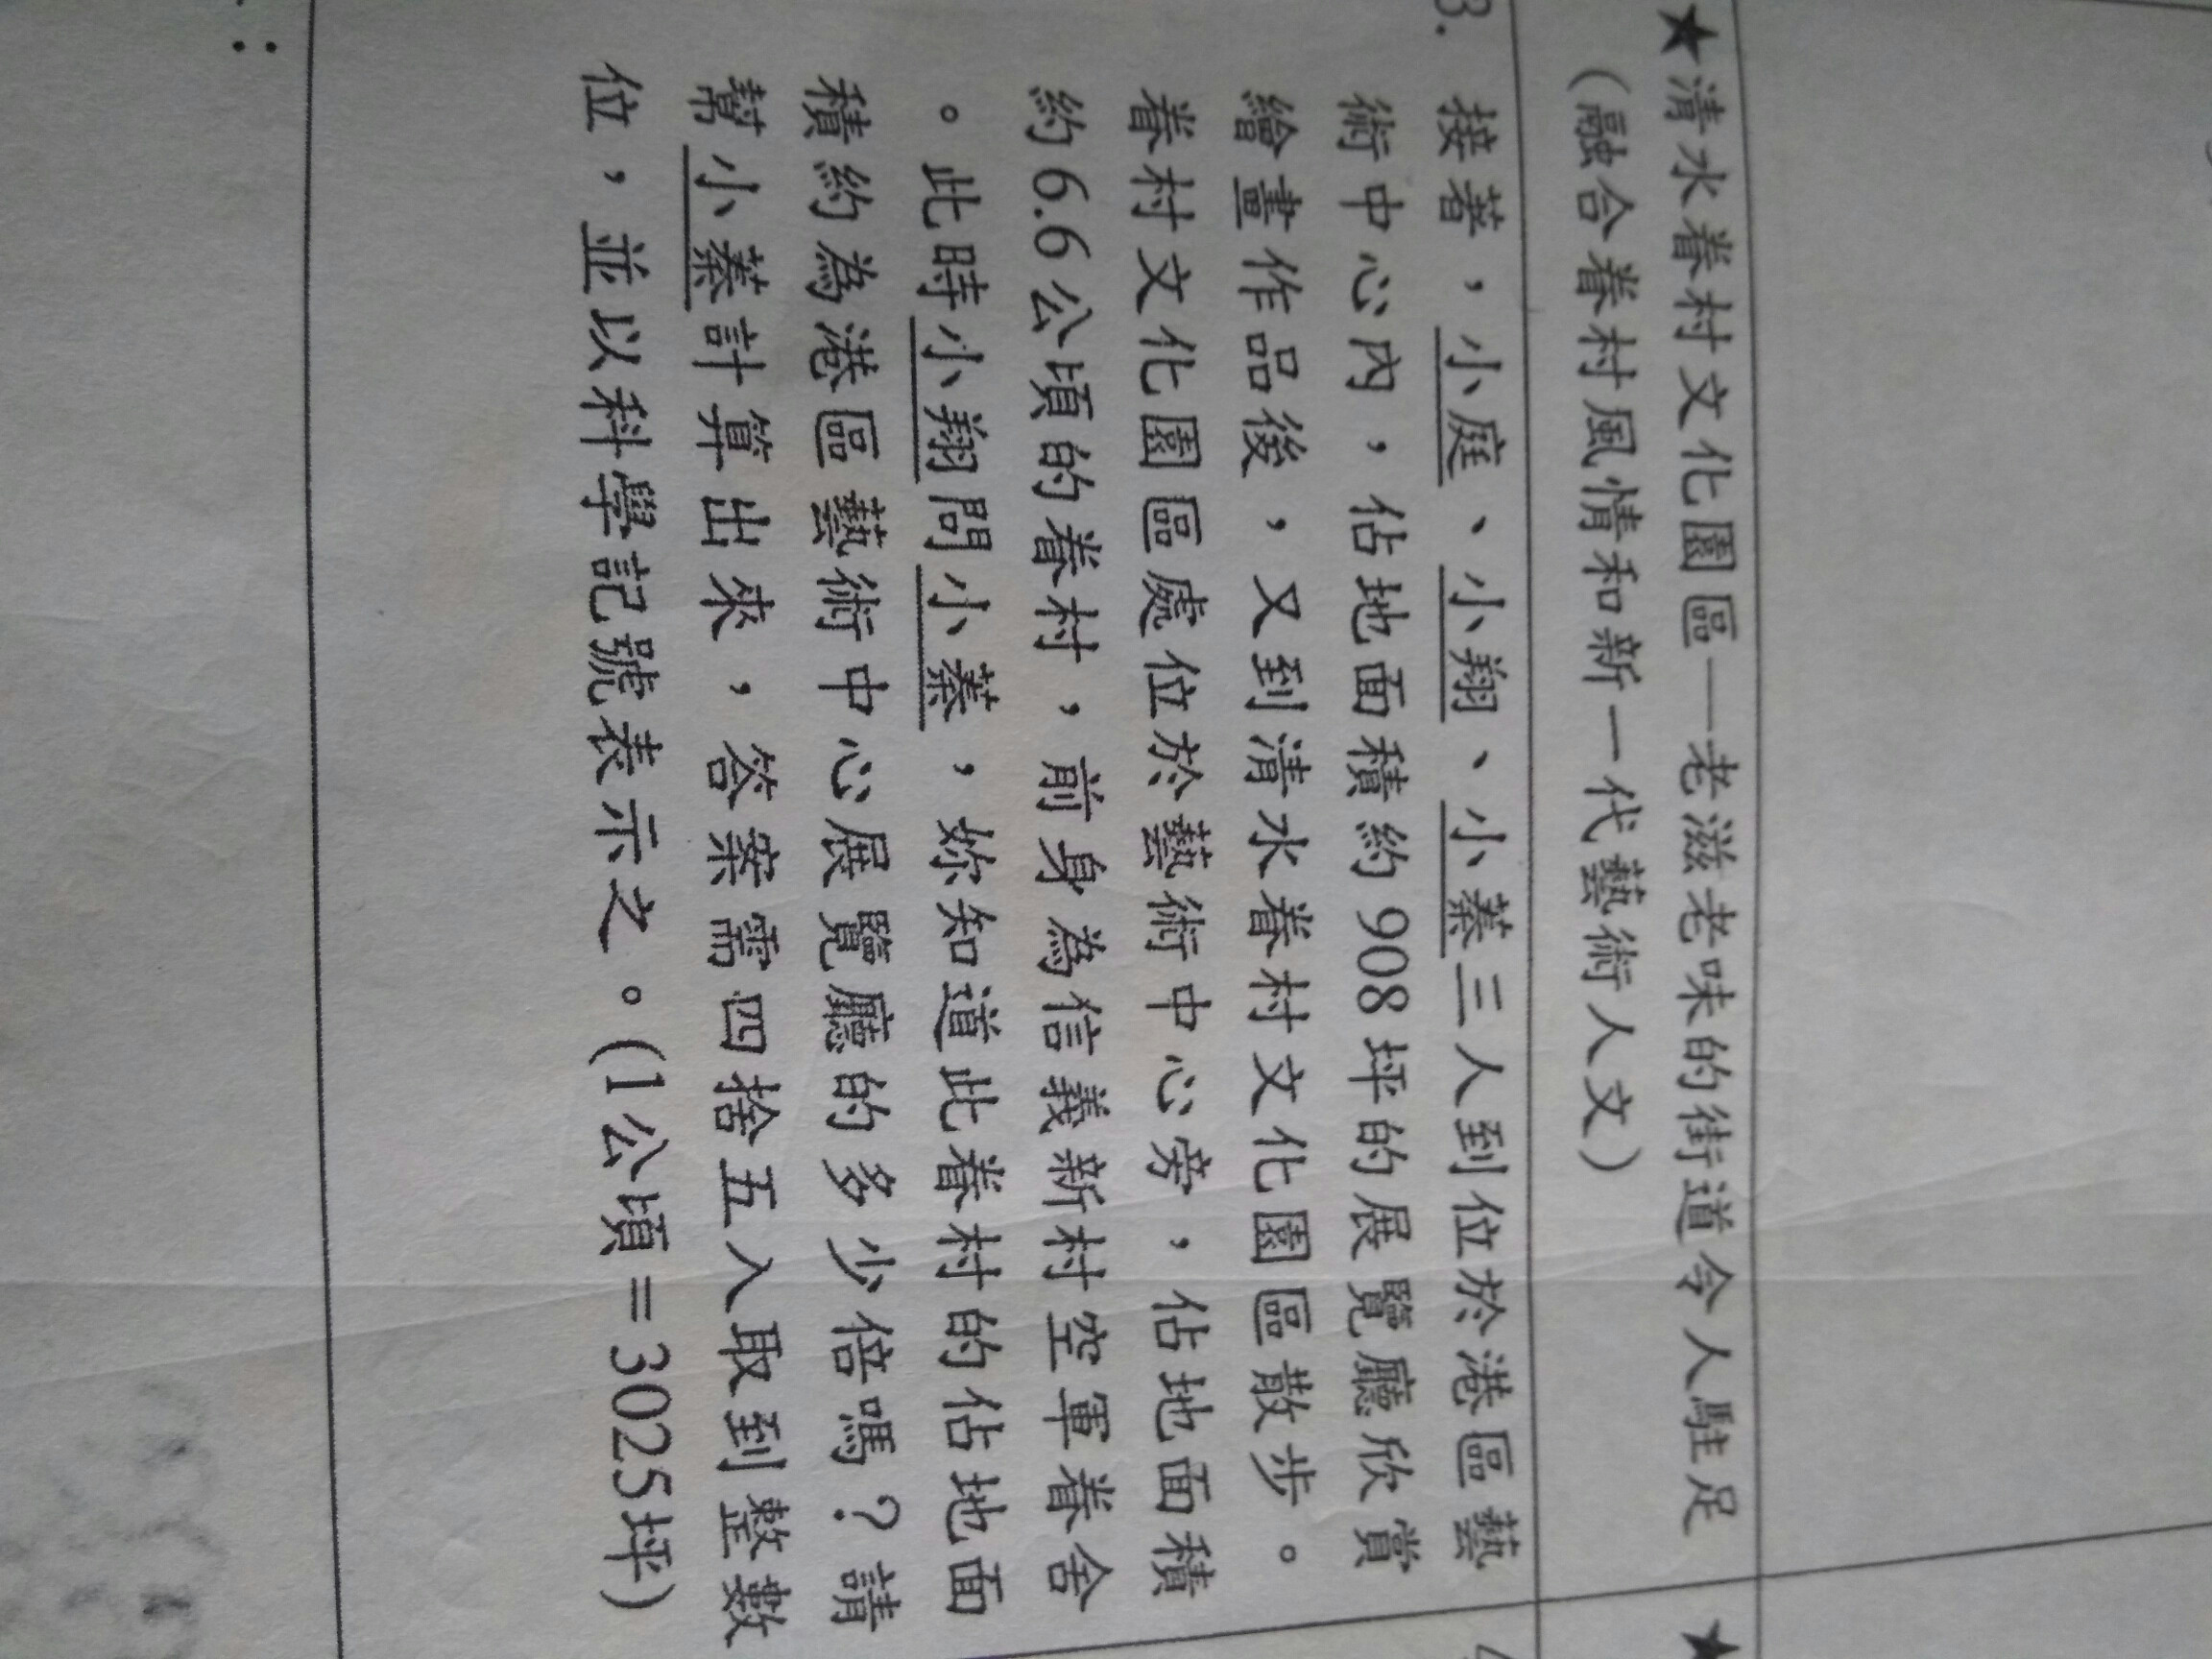 ★清水眷村文化園區—老滋老味的街道令人駐足
(融合眷村風情和新一代藝術人文)
3. 接著，小庭、小翔、小蓁三人到位於港區藝
術中心內，佔地面積約908坪的展覽廳欣賞
繪畫作品後，又到清水眷村文化園區散步。
眷村文化園區處位於藝術中心旁，佔地面積
約6.6公頃的眷村，前身為信義新村空軍眷舍
。此時小翔問小蓁，妳知道此眷村的佔地面
積約為港區藝術中心展覽廳的多少倍嗎？請
幫小蓁計算出來，答案需四捨五入取到整數
位，並以科學記號表示之。(1公頃=3025坪)
★